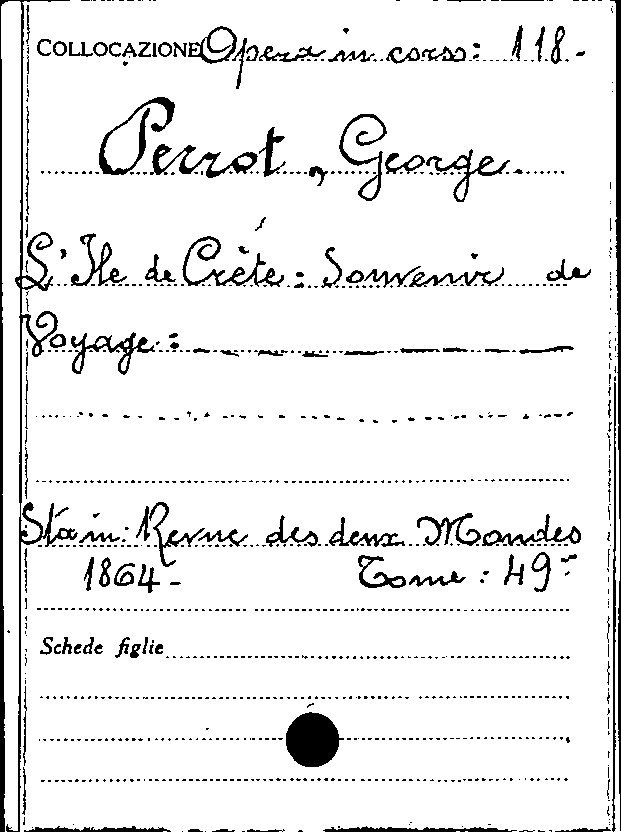 COLLOCAZIONE Opera in corso: 118.
Perrot, George.
L'Ile de Crète: Souvenir de
Voyage:
Sta in: Revue des deux Mondes
1864- Tome: 49-
Schede figlie